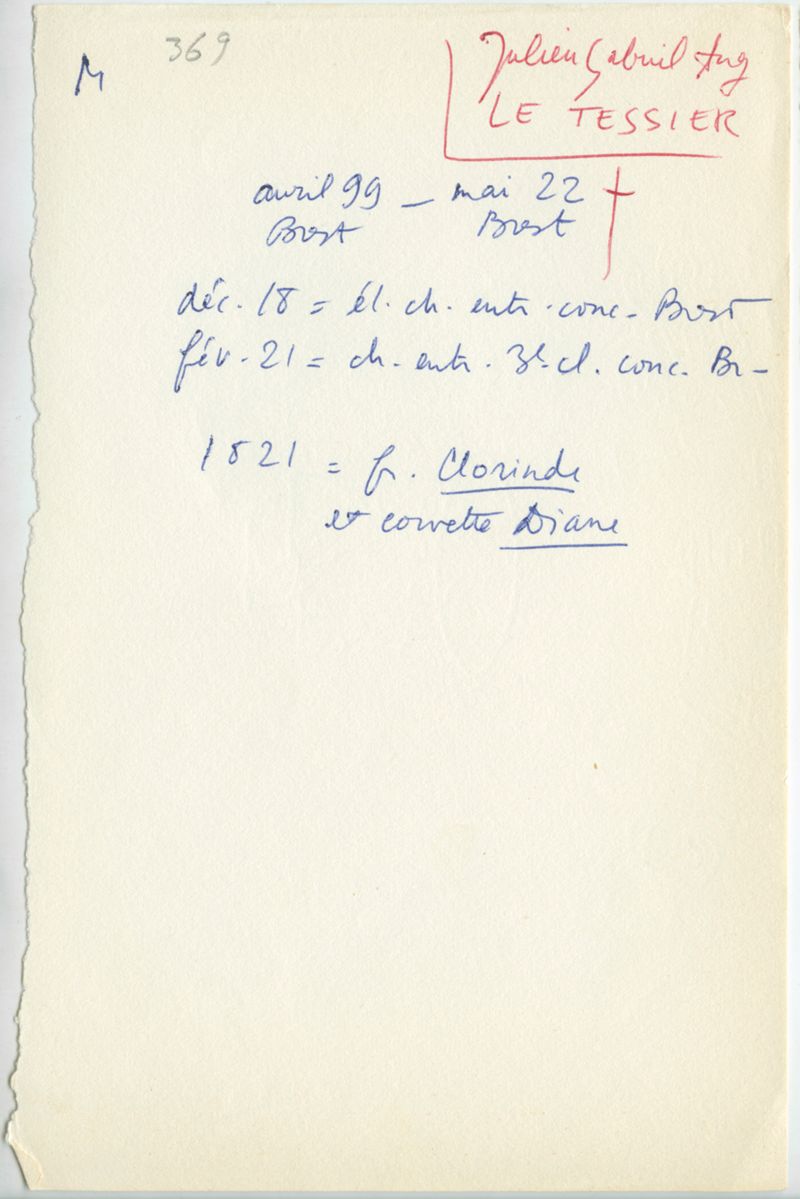 M
369
Julien Gabriel Aug
LE TESSIER
avril 99 – mai 22 †
Brest Brest
déc. 18 = él. ch. entr. conc. Brest
fév. 21 = ch. entr. 3e cl. conc. Br –
1821 = fr. Clorinde
et corvette Diane